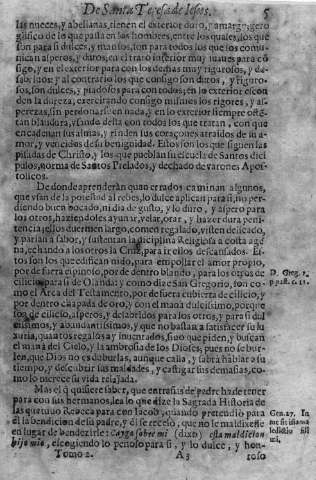 De Santa Teresa de Iesus. 5
las nueces, y abellanas, tienen el exterior duro, y amargo; gero
glifico de lo que passa en los hombres, entre los quales, los que
son para si dulces, y mansos, son para todos los que los comu
nican asperos, y duros, en el trato interior muy suaues para cõ
sigo, y en el exterior para con los demas muy rigurosos, y de
sabridos: y al contrario los que consigo son duros, y riguro-
sos, son dulces, y piadosos para con todos; en lo exterior escon
den la dureza, exercitando consigo mismos los rigores, y as-
perezas, sin perdonarse en nada, y en lo exterior siempre osté-
tan blandura, vsando desta con todos los que tratan, con que
encadenan sus almas, y rinden sus coraçones atraidos de su a-
mor, y vencidos de su benignidad. Estos son los que siguen las
pisadas de Christo, y los que pueblan su escuela de Santos dici
pulos, norma de Santos Prelados, y dechado de varones Apos-
tolicos.
De donde aprenderàn quan errados caminan algunos,
que vsan de la potestad al rebes, lo dulce aplican para si, no per
diendo buen bocado, ni dia de gusto, y lo duro, y aspero para
los otros, haziendoles ayunar, velar, orar, y hazer dura peni-
tencia; ellos duermen largo, comen regalado, visten delicado,
y parlan a sabor, y sustentan la diciplina Religiosa a costa age
na, echando a los otros la Cruz, para ir ellos descansados. Es
tos son los que edifican nido, para empollar el amor propio,
por de fuera espinoso, por de dentro blando, para los otros de
cilicio, para si de Olanda: y como dize San Gregorio, son co-
mo el Arca del Testamento, por de fuera cubierta de cilicio, y
por dentro chapada de oro, y con el mana dulcissimo, porque
son de cilicio, asperos, y desabridos para los otros, y para si dul
cissimos, y abundantissimos, y que no bastan a satisfacer su lu
xuria, quantos regalos ay inuentados, sino que piden, y buscan
el manà del Cielo, y la ambrosia de los Dioses, pues no se bur-
len, que Dios no es de burlas, aunque calla, y sabrà hablar a su
tiempo, y descubrir sus maldades, y castigar sus demasias, co-
mo lo merece su vida relajada.
Mas el q quisiere saber, que entrañas de padre ha de tener
para con sus hermanos, lea lo que dize la Sagrada Historia de
las que tuuo Rebeca para con Iacob, quando pretendió para
el la bendicion de su padre, y él se receló, que no le maldixesse
en lugar de bendezirle: Cayga sobre mi (dixo) esta maldicion
hijo mio, escogiendo lo penoso para si, y lo hon-
Tomo 2. A3 roso
D. Greg. 3.
p. past. c. 11.
Gen. 27. In
me sit ista ma
ledictio fili
mi,